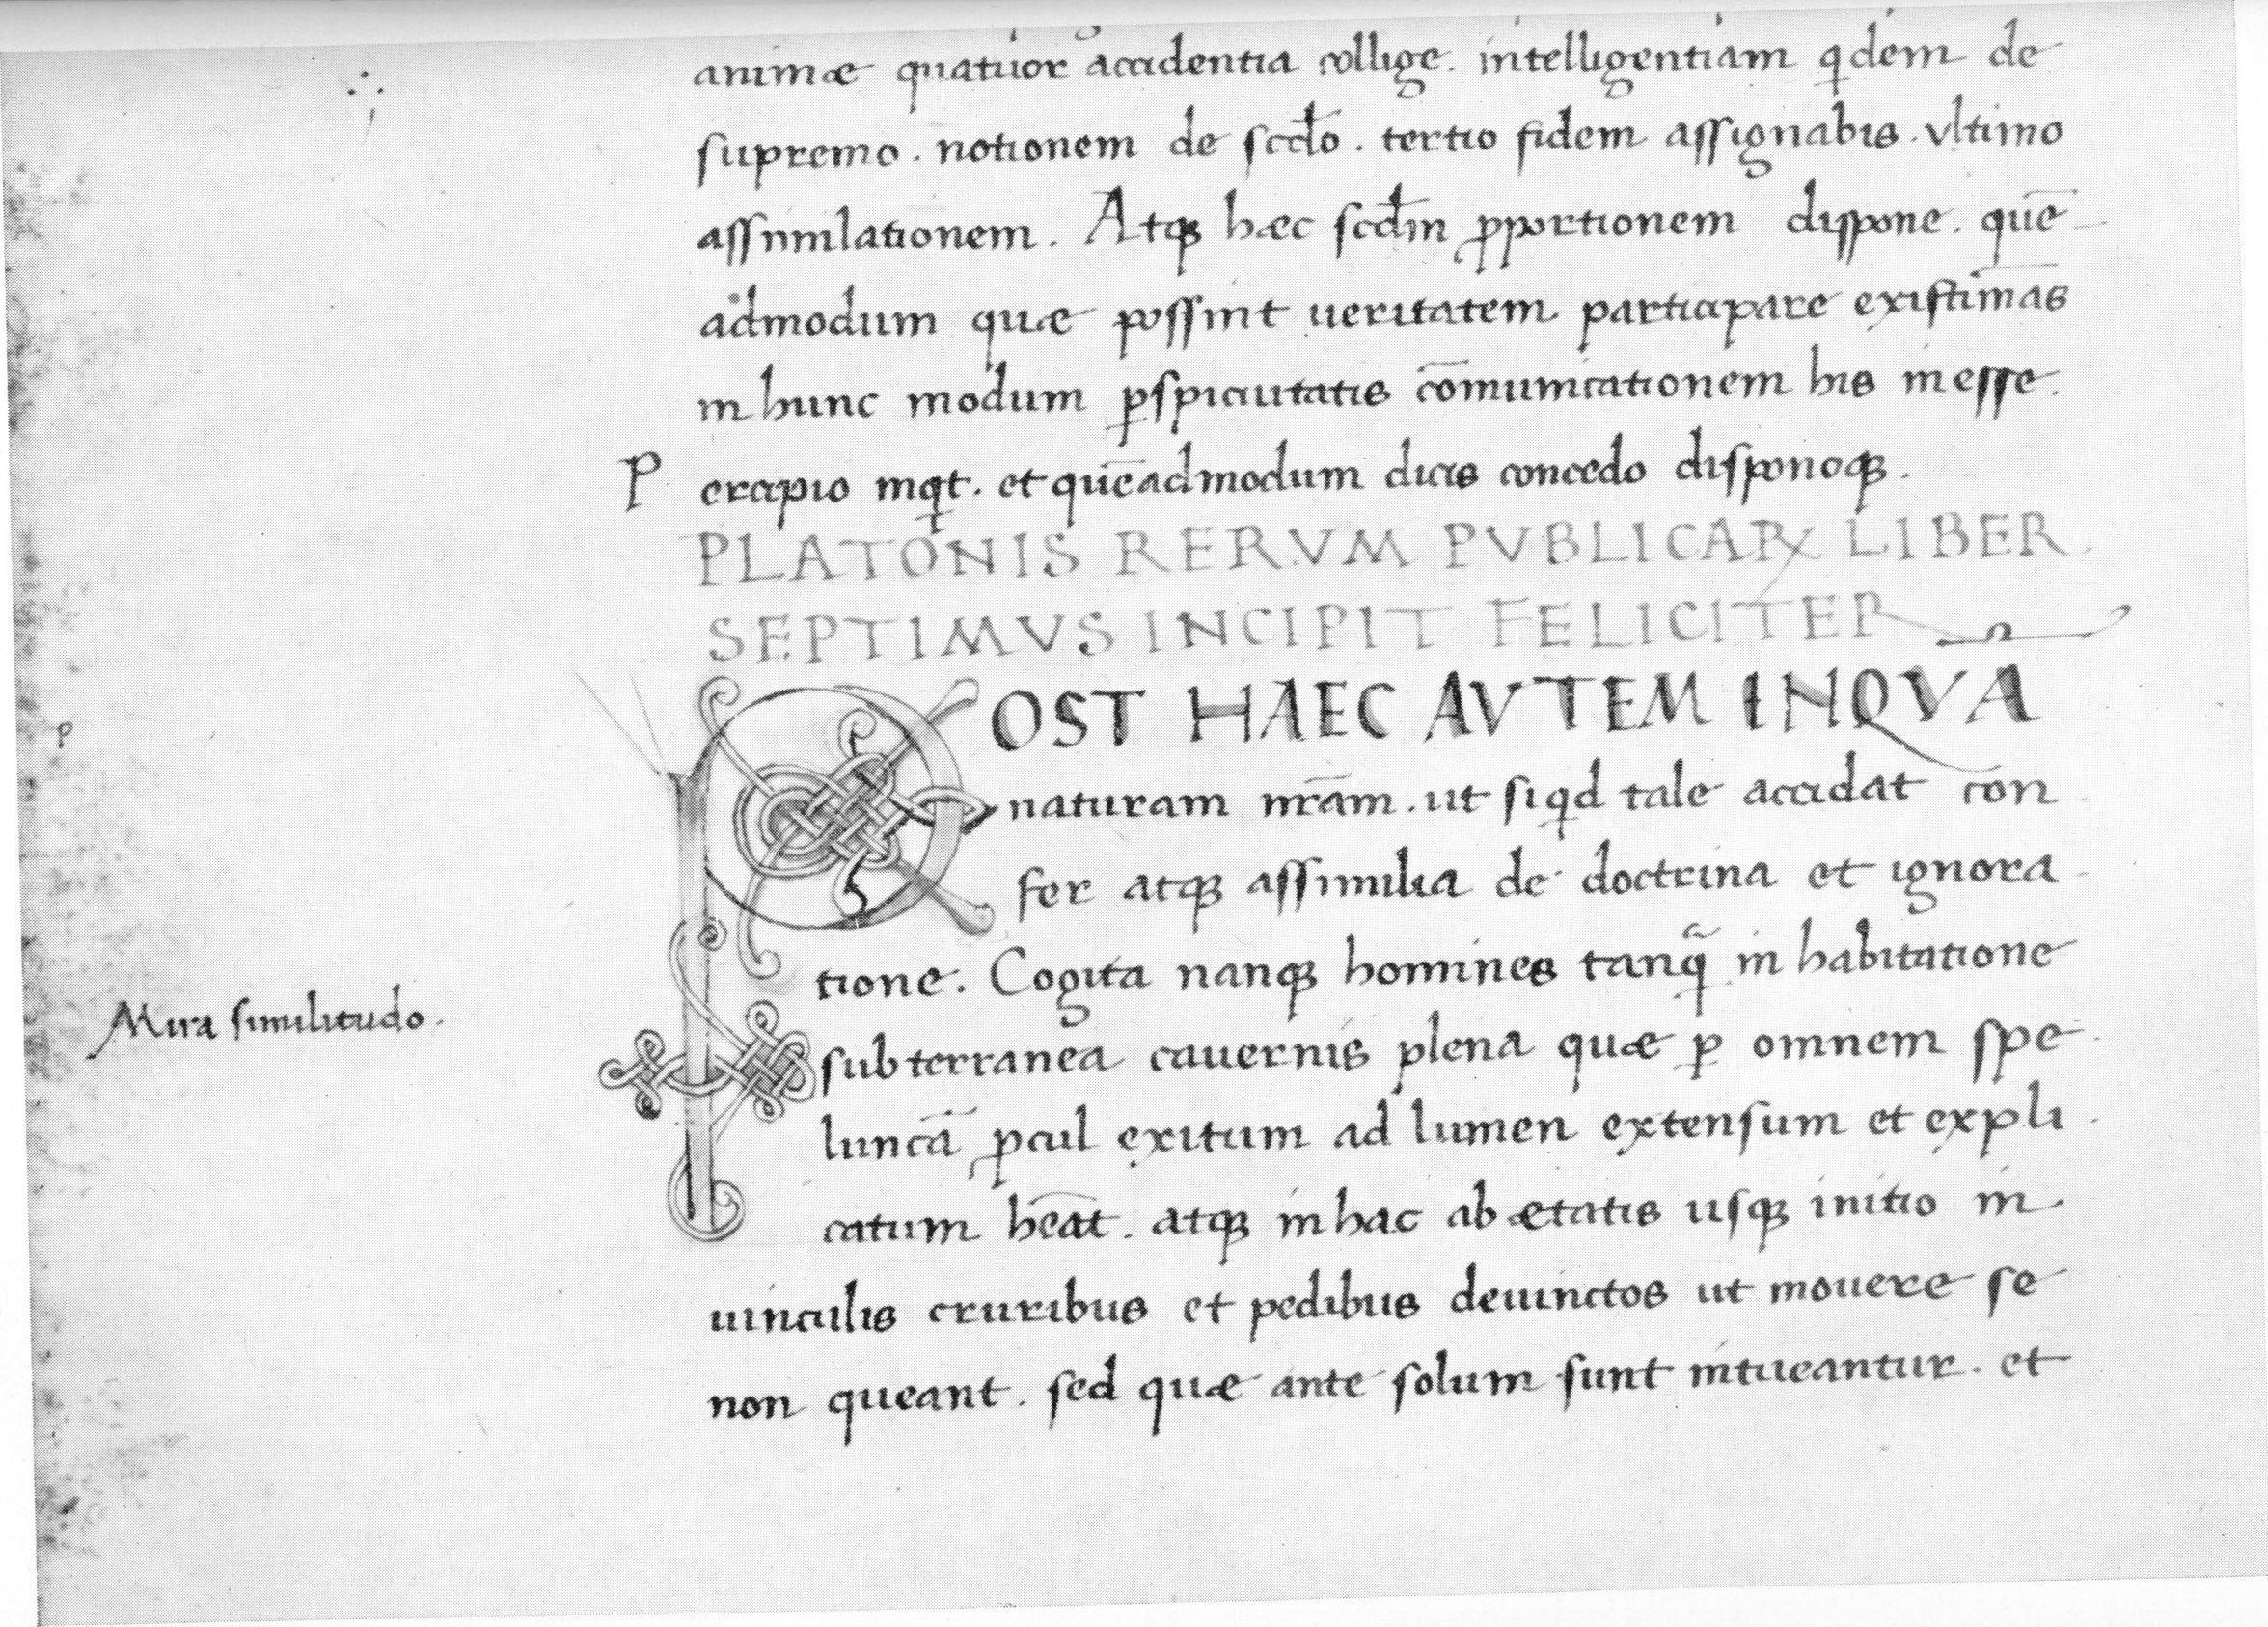 animæ quatuor accidentia collige. intelligentiam qdem de
supremo. notionem de scdo. tertio fidem assignabis. vltimo
assimilationem. Atqꝫ hæc scdm ꝓportionem dispone. quē
admodum quæ possint ueritatem participare existimās
in hunc modum ꝑspicuitatis cōmunicationem his inesse.
Percipio inqt. et quēadmodum dicis concedo disponoqꝫ.
PLATONIS RERVM PVBLICAꝜ LIBER
SEPTIMVS INCIPIT FELICITER
POST HAEC AVTEM INQVA
naturam nr̄am. ut siqd tale accidat con
fer atqꝫ assimila de doctrina et ignora
tione. Cogita nanqꝫ homines tanq̄ in habitatione
Mira similitudo.
subterranea cauernis plena quæ ꝑ omnem spe
luncā ꝓcul exitum ad lumen extensum et expli
catum hēat. atqꝫ in hac ab ætatis usqꝫ initio in
uinculis cruribus et pedibus deuinctos ut mouere se
non queant. sed quæ ante solum sunt intueantur. et